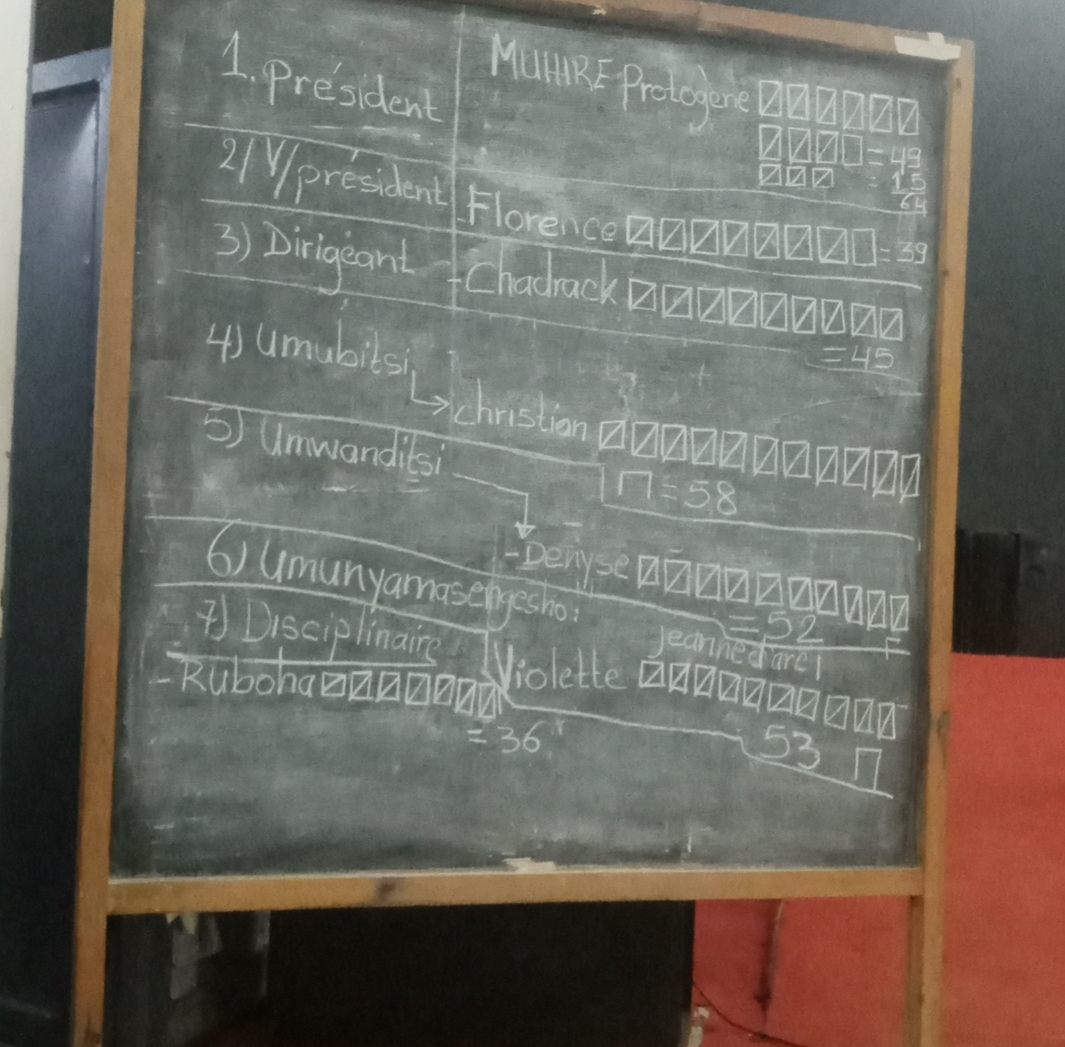 1. Président
MUHIRE Protogène
= 49
= 15
64
2/ V/président
-Florence = 39
3) Dirigeant
-Chadrack
= 45
4) Umubitsi
christian
= 58
5) Umwanditsi
-Denyse
= 52
6) Umunyamasengesho:
Jeanne d'arc 1
7) Disciplinaire
Violette
53
-Ruboha
= 36